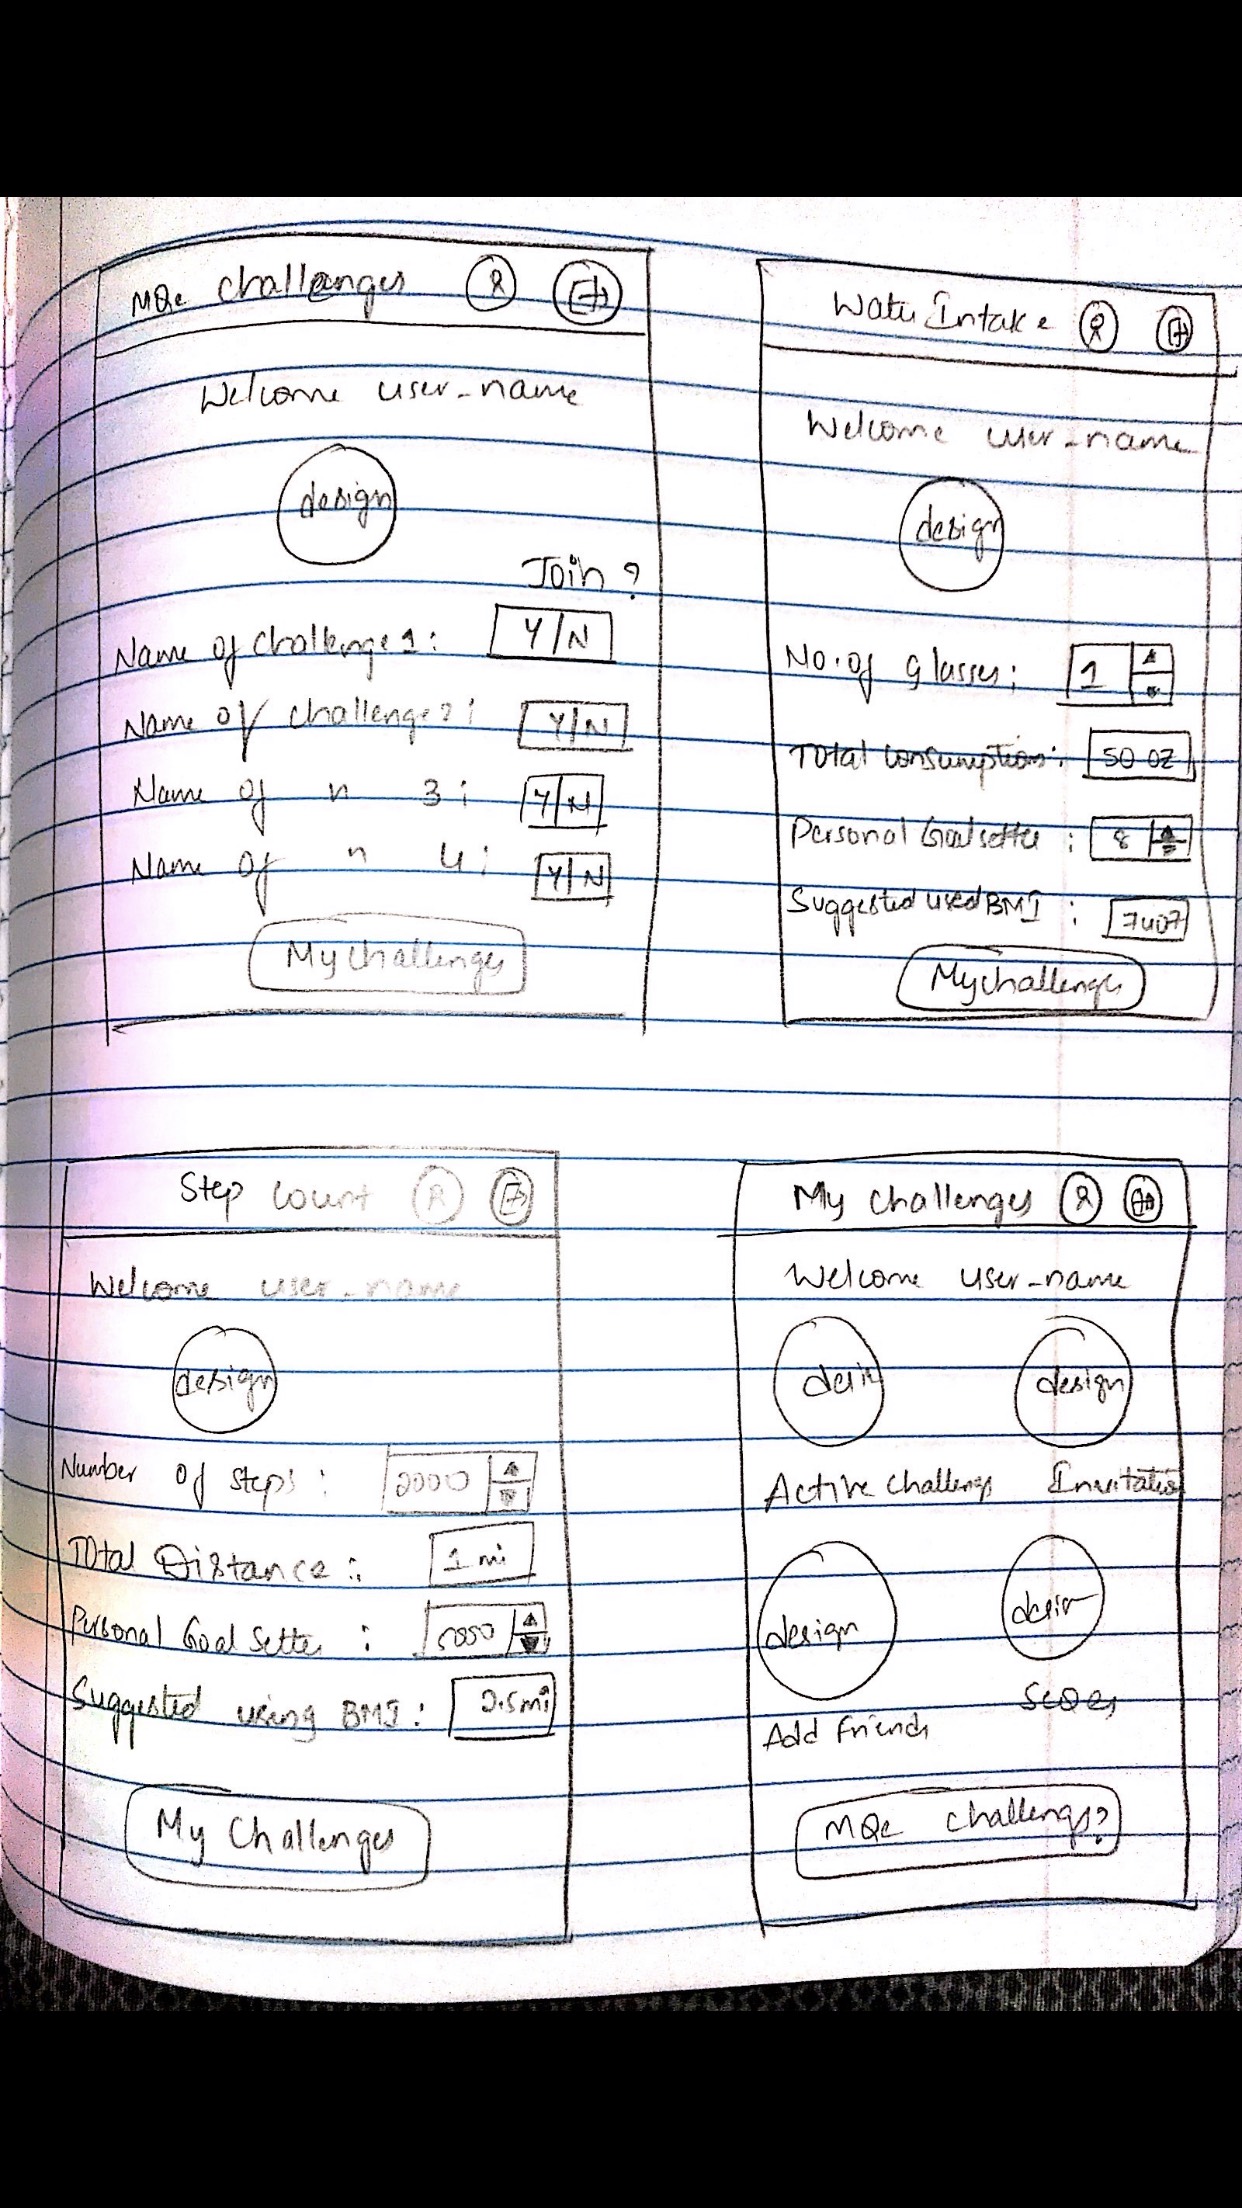 MQe challenges
Welcome user-name
design
Join ?
Name of challenge 1 : Y/N
Name of challenge 2 : Y/N
Name of n 3 : Y/N
Name of n 4 : Y/N
My challenges
Water Intake
Welcome user-name
design
No. of glasses : 1
Total Consumption : 50 oz
Personal Goal setter : 8
Suggested used BMI :
My challenges
Step count
Welcome user-name
design
Number of steps : 2000
Total Distance : 1 mi
Personal Goal Setter : 5000
Suggested using BMI : 2.5mi
My Challenges
My challenges
Welcome user-name
design
Active challenges Invitation
design
Add Friends
MQe challenges?